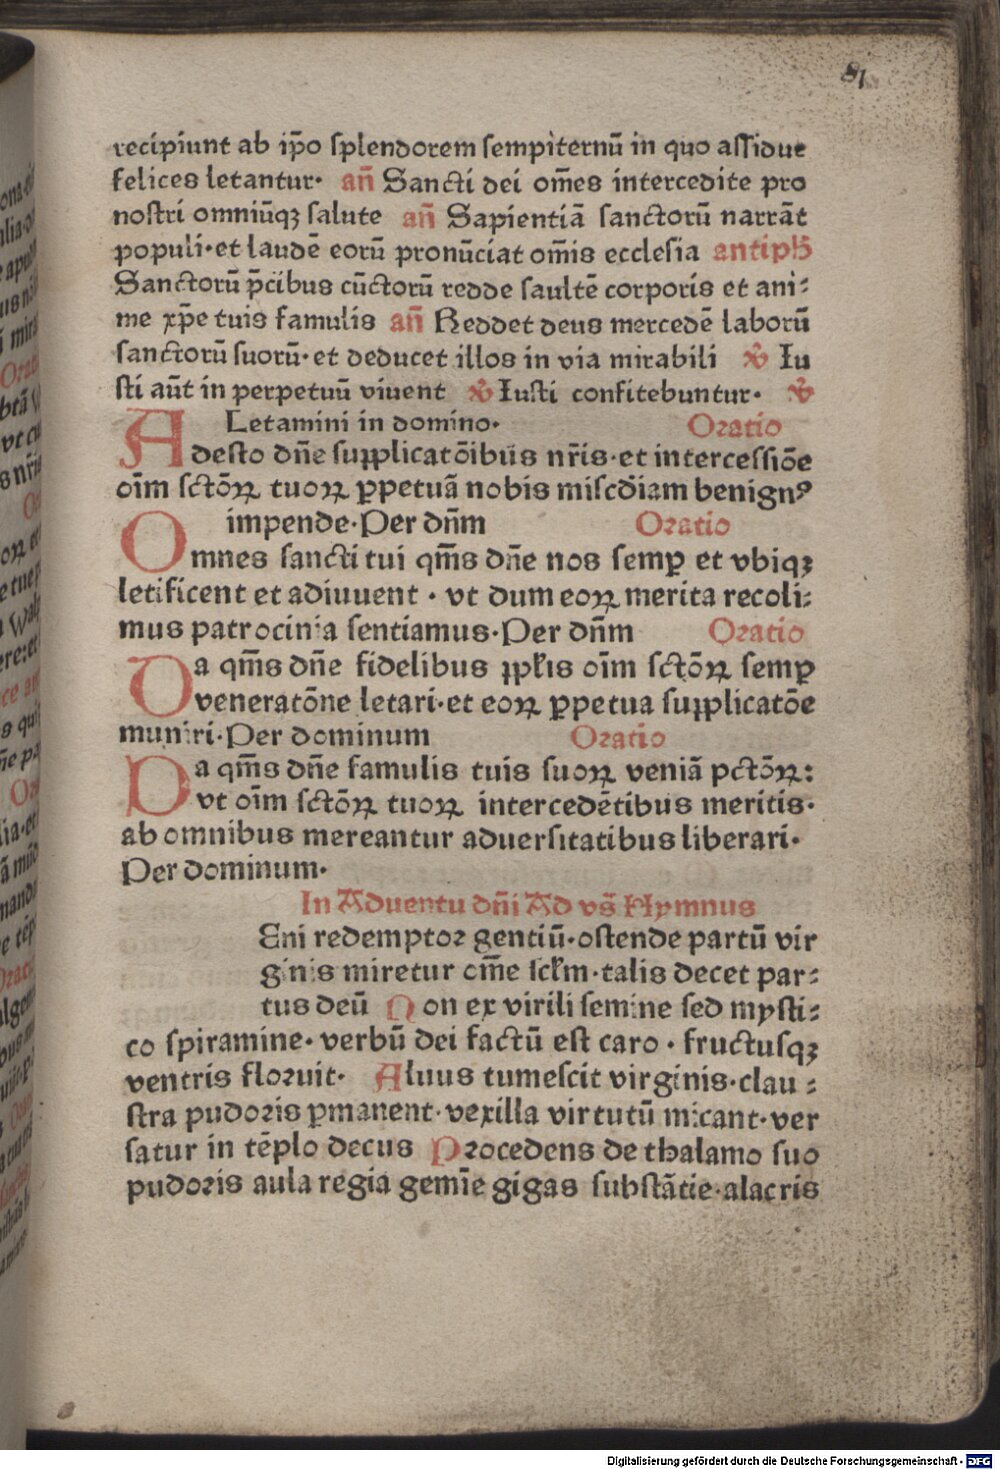 81
recipiunt ab ip̄o ſplendorem ſempiternū in quo aſſidue
felices letantur· an̄ Sancti dei om̄es intercedite pro
noſtri omniūqꝫ ſalute an̄ Sapientiā ſanctorū narrāt
populi·et laudē eorū pronūciat om̄is eccleſia antiph̄
Sanctorū p̄cibus cūctorū redde ſaultē corporis et ani⸗
me xp̄e tuis famulis an̄ Reddet deus mercedē laborū
ſanctorū ſuorū·et deducet illos in via mirabili ℣ Iu
ſti aūt in perpetuū viuent ℣ Iuſti confitebuntur· ℣
Letamini in domino· Oratio
Adeſto dn̄e ſupplicatōibus nr̄is·et interceſſiōe
oīm ſctōꝝ tuoꝝ ꝑpetuā nobis miſcd̄iam benignꝰ
impende·Per dn̄m Oratio
Omnes ſancti tui qm̄s dn̄e nos ſemꝑ et vbiqꝫ
letificent et adiuuent · vt dum eoꝝ merita recoli⸗
mus patrocinia ſentiamus·Per dn̄m Oratio
Da qm̄s dn̄e fidelibus ppl̄is oīm ſctōꝝ ſemꝑ
veneratōne letari·et eoꝝ ꝑpetua ſupplicatōe
muniri·Per dominum Oratio
Da qm̄s dn̄e famulis tuis ſuoꝝ veniā pctōꝝ:
vt oīm ſctōꝝ tuoꝝ intercedētibus meritis·
ab omnibus mereantur aduerſitatibus liberari·
Per dominum·
In Aduentu dn̄i Ad vs̄ Hymnus
Eni redemptoꝛ gentiū·oſtende partū vir
ginis miretur om̄e ſcl̄m·talis decet par⸗
tus deū Non ex virili ſemine ſed myſti⸗
co ſpiramine· verbū dei factū eſt caro · fructuſqꝫ
ventris floꝛuit· Aluus tumeſcit virginis·clau⸗
ſtra pudoꝛis ꝑmanent·vexilla virtutū micant·ver
ſatur in tēplo decus Pꝛocedens de thalamo ſuo
pudoꝛis aula regia gemīe gigas ſubſtātie·alacris
Digitalisierung gefördert durch die Deutsche Forschungsgemeinschaft - DFG